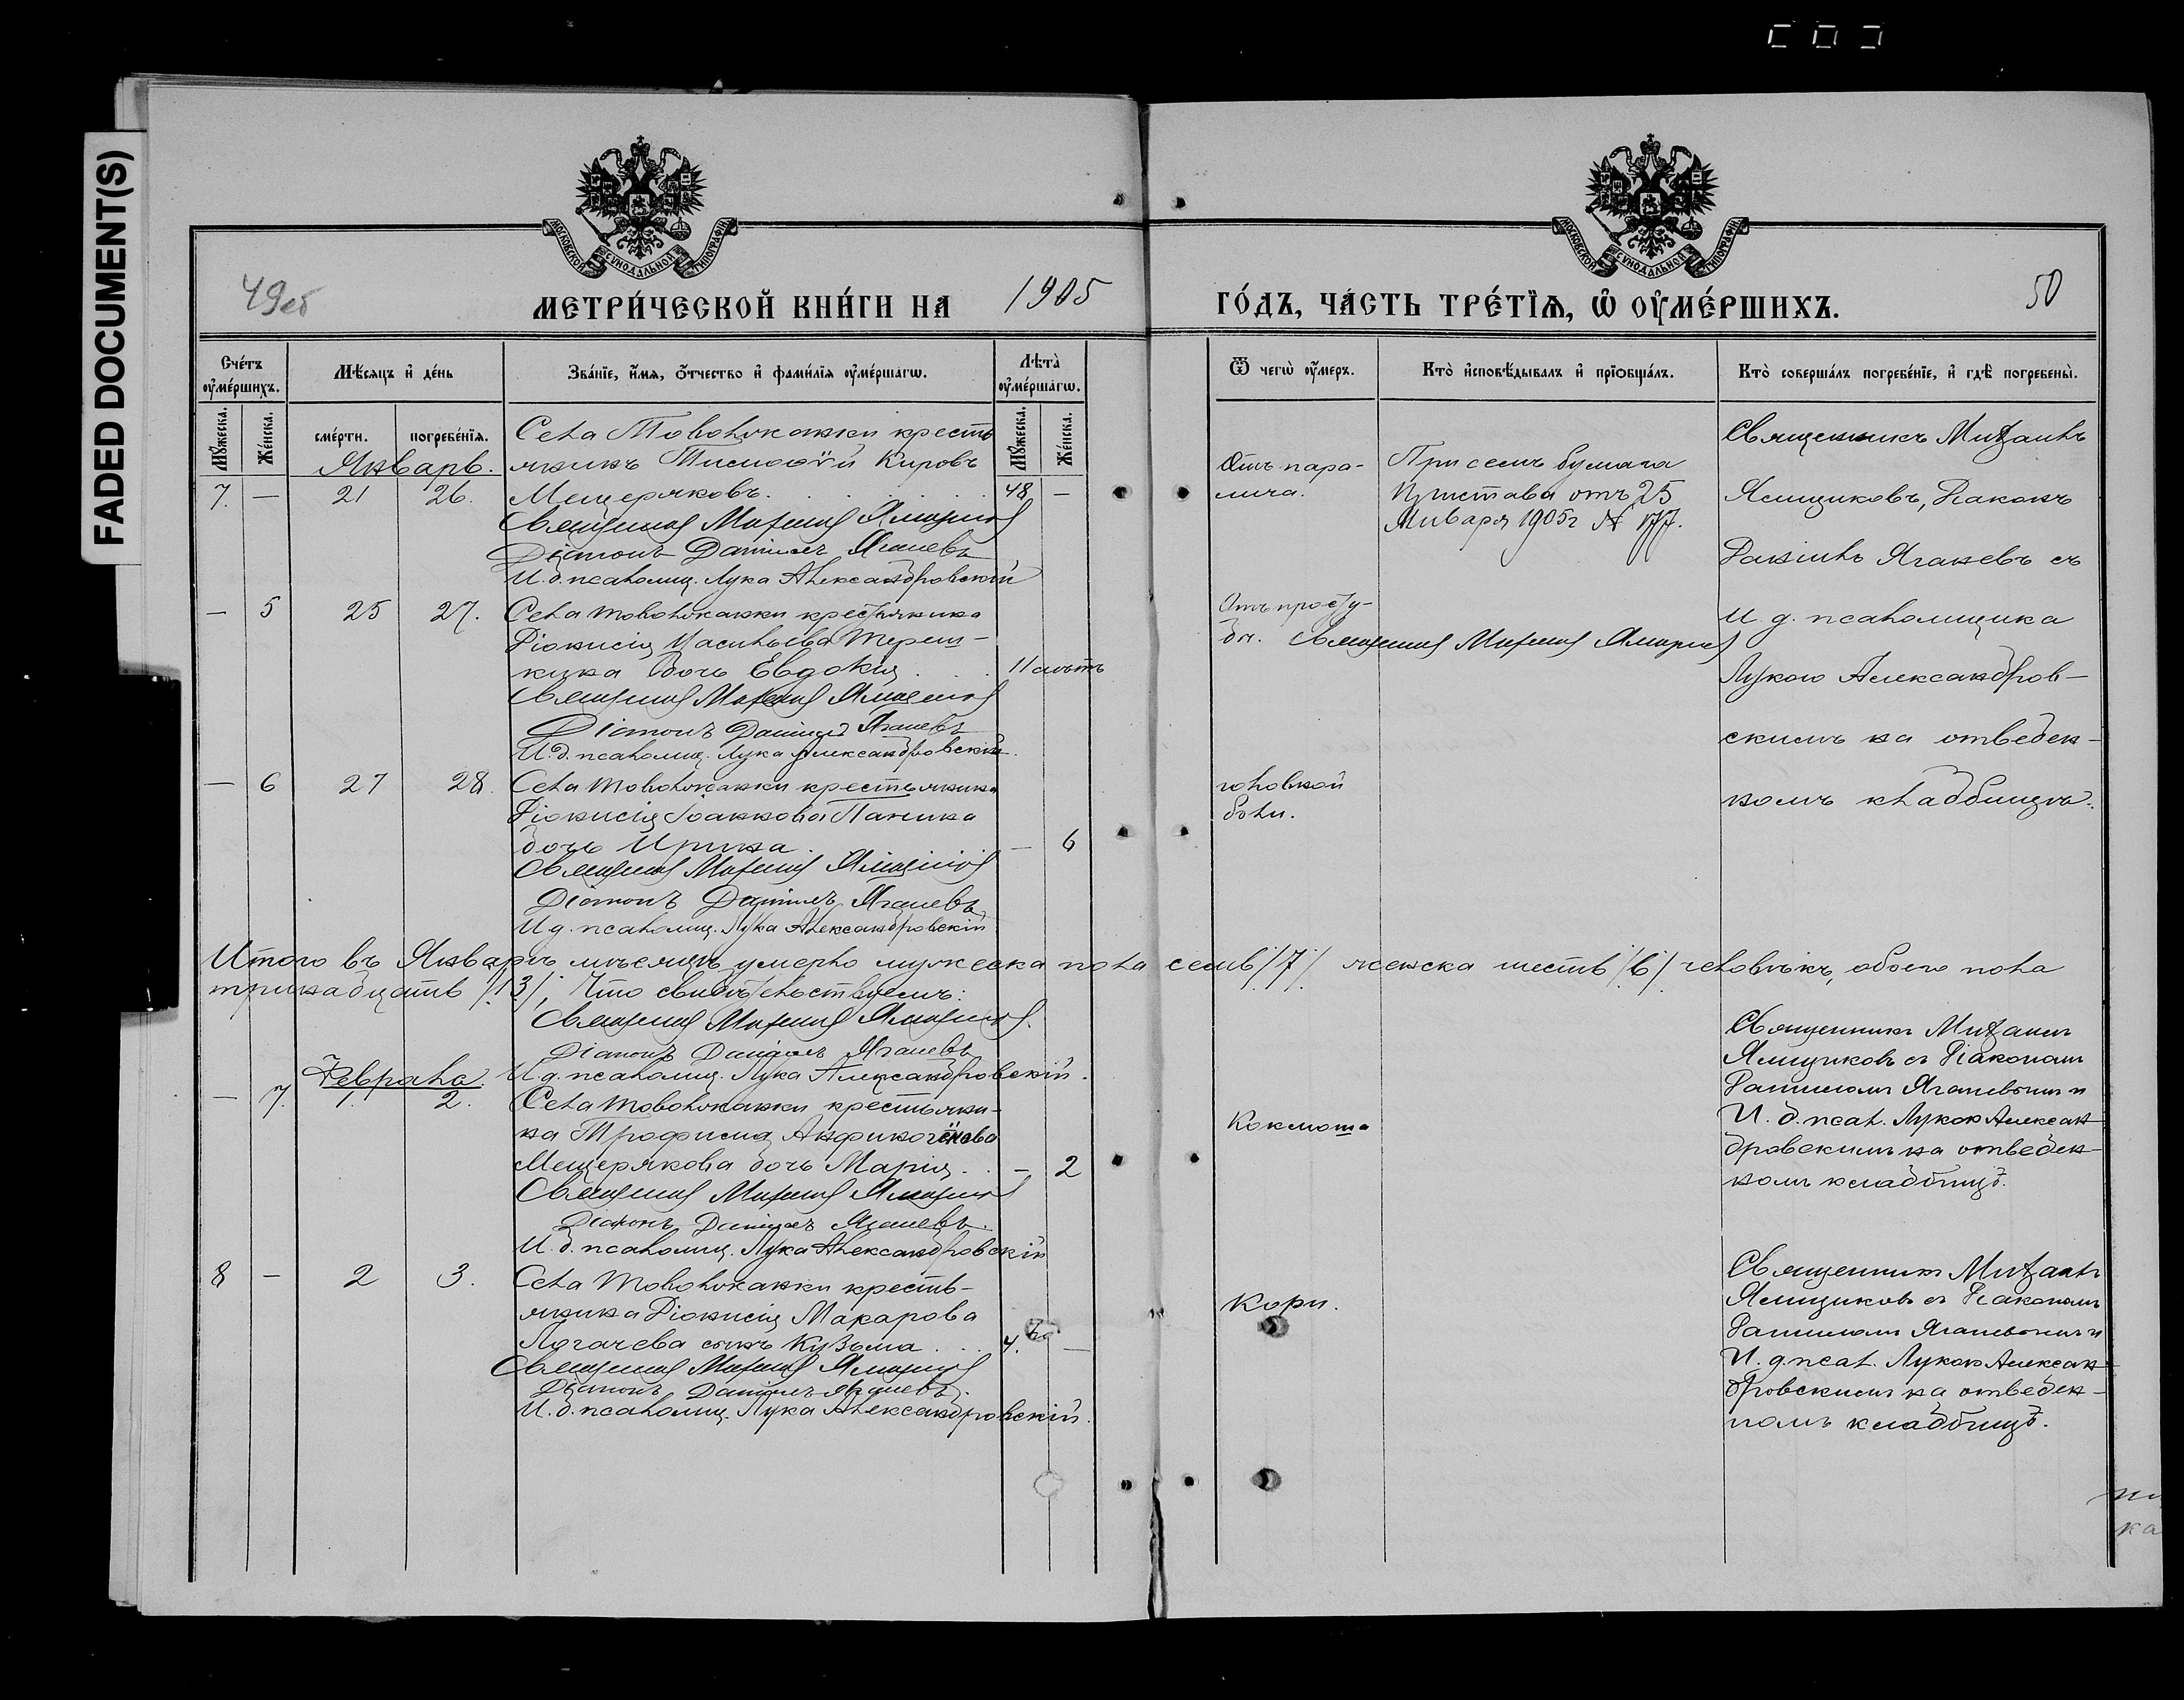 FADED DOCUMENT(S)
МОСКОВСКОЙ СѴНОДАЛЬНОЙ ТИПОГРАФІИ
МОСКОВСКОЙ СѴНОДАЛЬНОЙ ТИПОГРАФІИ
49об
МЕТРИ́ЧЕСКОЙ КНИ́ГИ НА 1905 ГО́ДЪ, ЧА́СТЬ ТРЕ́ТЇѦ, Ѡ҆ ОУ҆МЕ́РШИХЪ.
50
Сче́тъ оу҆ме́ршихъ.
Мѣ́сяцъ и҆ де́нь
Зва́нїе, и҆́мя, о҆́тчество и҆ фами́лїя оу҆ме́ршагѡ.
Лѣта̀ оу҆ме́ршагѡ.
Ѿ чегѡ̀ оу҆́меръ.
Кто̀ и҆сповѣ́дывалъ и҆ прїѻбща́лъ.
Кто̀ соверша́лъ погребе́нїе, и҆ гдѣ̀ погребены̀.
Му́жеска.
Же́нска.
сме́рти.
погребе́нїя.
Му́жеска.
Же́нска.
Январь.
7. — 21 26.
Села Товолжанки кресть
янинъ Тимоѳѣй Кировъ
Мещеряковъ. 48 —
Священникъ Михаилъ Ямщиков
Діаконъ Даниилъ Яганевъ
И. д. псаломщ. Лука Александровскій
Отъ пара-
лича.
При семъ бумага
Пристава отъ 25
Января 1905 г № 177.
Священникъ Михаилъ
Ямщиковъ, Діаконъ
Даніилъ Яганевъ съ
и. д. псаломщика
Лукою Александров-
скимъ на отведен-
номъ кладбищѣ.
— 5 25 27.
Села Товолжанки крестьянина
Діонисія Васильева Тереш-
кина дочь Евдокія 11 лѣтъ
Священникъ Михаилъ Ямщиков
Діаконъ Даниилъ Яганевъ
И. д. псаломщ. Лука Александровскій.
Отъ просту-
ды. Священникъ Михаилъ Ямщиков
— 6 27 28.
Села Товолжанки крестьянина
Діонисія Іоаннова Панина
дочь Ирина. — 6
Священникъ Михаилъ Ямщиков
Діаконъ Даниилъ Яганевъ
И д. псаломщ. Лука Александровскій
головной
боли.
Итого въ Январѣ мѣсяцѣ умерло мужеска пола семь /7/ женска шесть /6/ человѣкъ, обоего пола
тринадцать /13/, Что свидѣтельствуемъ:
Священникъ Михаилъ Ямщиков.
Діаконъ Даниилъ Яганевъ
И д. псаломщ. Лука Александровскій.
Февраль.
— 7. 1. 2.
Села Товолжанки крестьяни-
на Трофима Анфиногенова
Мещерякова дочь Марія. — 2
Священникъ Михаилъ Ямщиков
Діаконъ Даниилъ Яганевъ.
И. д. псаломщ. Лука Александровскій
Священникъ Михаилъ
Ямщиковъ съ Діакономъ
Данииломъ Яганевымъ и
И. д. псал. Лукою Алексан
дровскимъ на отведен-
номъ кладбищѣ.
8 — 2 3.
Села Товолжанки кресть-
янина Діонисія Макарова
Логачева сынъ Кузьма 4. —
Священникъ Михаилъ Ямщиков
Діаконъ Даниилъ Яганевъ.
И. д. псаломщ. Лука Александровскій.
Кори.
Священникъ Михаилъ
Ямщиковъ съ Діакономъ
Данииломъ Яганевымъ и
И. д. псал. Лукою Алексан
дровскимъ на отведен-
номъ кладбищѣ.